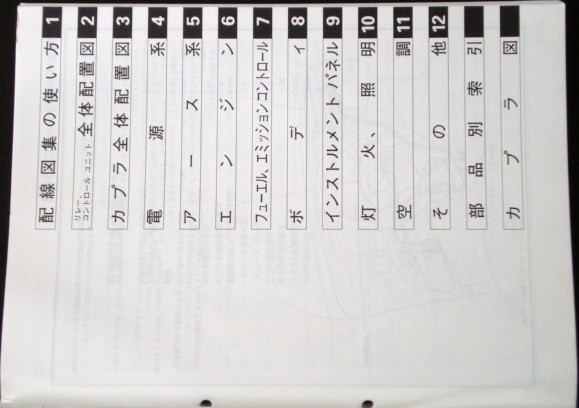 配線図集の使い方 1
リレー、コントロール ユニット 全体配置図 2
カプラ全体配置図 3
電源系 4
アース系 5
エンジン 6
フューエル、エミッションコントロール 7
ボディ 8
インストルメント パネル 9
灯火、照明 10
空調 11
その他 12
部品別索引
カプラ図